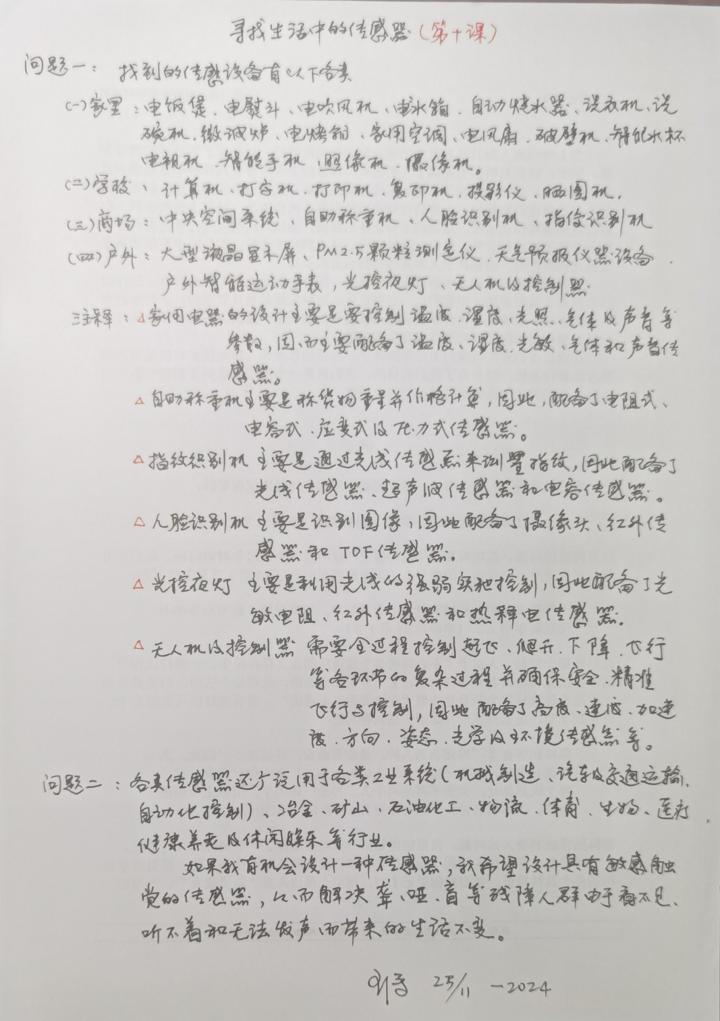 寻找生活中的传感器（第十课）
问题一：找到的传感设备有以下各类
(一)家里：电饭煲、电熨斗、电吹风机、电冰箱、自动烧水器、洗衣机、洗
碗机、微波炉、电烤箱、家用空调、电风扇、破壁机、智能水杯
电视机、智能手机、照像机、摄像机。
(二)学校：计算机、打字机、打印机、复印机、投影仪、晒图机。
(三)商场：中央空调系统、自助称重机、人脸识别机、指纹识别机
(四)户外：大型液晶显示屏、PM2.5颗粒测定仪、天气预报仪器设备、
户外智能运动手表，光控夜灯、无人机及控制器
注释：△家用电器的设计主要是要控制温度、湿度、光照、气体及声音等
参数，因而主要配备了温度、湿度、光敏、气体和声音传
感器。
△自助称重机主要是称货物重量并作价格计算，因此，配备了电阻式、
电容式、应变式及压力式传感器。
△指纹识别机 主要是通过光线传感器来测量指纹，因此配备了
光线传感器、超声波传感器和电容传感器。
△人脸识别机 主要是识别图像，因此配备了摄像头、红外传
感器和TOF传感器。
△光控夜灯 主要是利用光线的强弱实施控制，因此配备了光
敏电阻、红外传感器和热释电传感器。
△无人机及控制器 需要全过程控制起飞、爬升、下降、飞行
等各环节的复杂过程并确保安全、精准
飞行与控制，因此配备了高度、速度、加速
度、方向、姿态、光学及环境传感器等。
问题二：各类传感器还广泛用于各类工业系统（机械制造、汽车及交通运输、
自动化控制）、冶金、矿山、石油化工、物流、体育、生物、医疗
健康养老及休闲娱乐等行业。
如果我有机会设计一种传感器，我希望设计具有敏感触
觉的传感器，以而解决聋、哑、盲等残障人群由于看不见、
听不着和无法发声而带来的生活不变。
25/11-2024